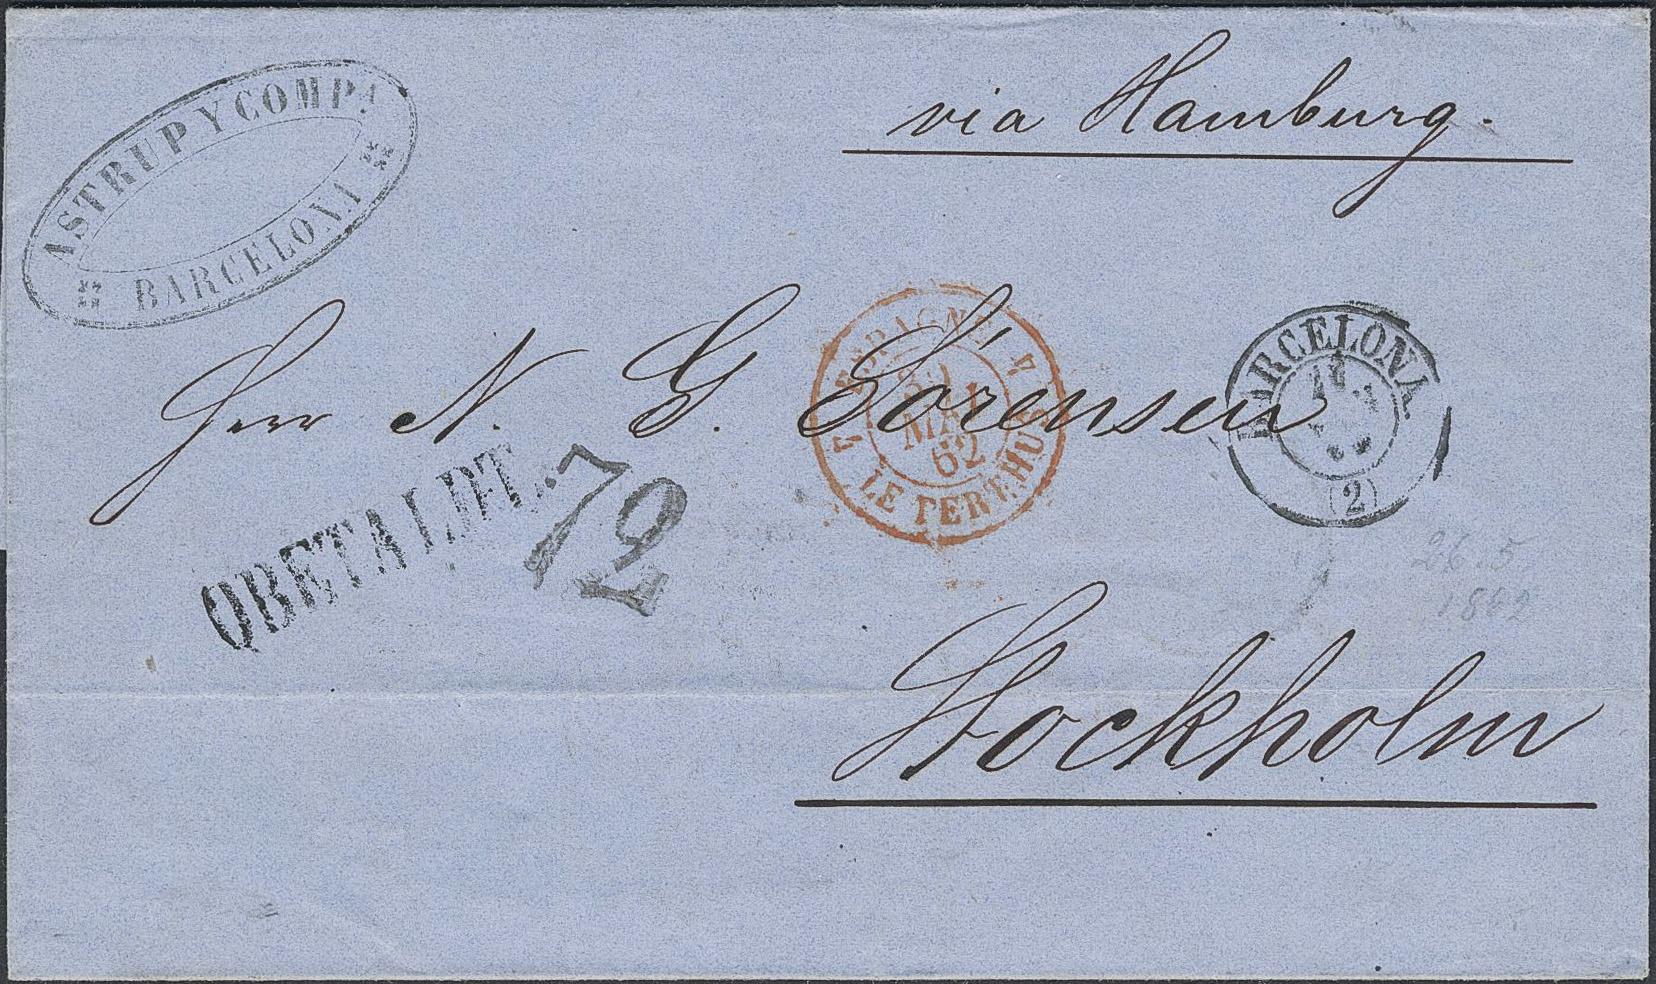 ASTRUP Y COMPA
BARCELONA
via Hamburg.
Herr N. G. Sörensen
ESPAGNE
4 4
MAI
62
LE PERTHUS
BARCELONA
(2)
OBETALDT.
72
26.5
1862
Stockholm